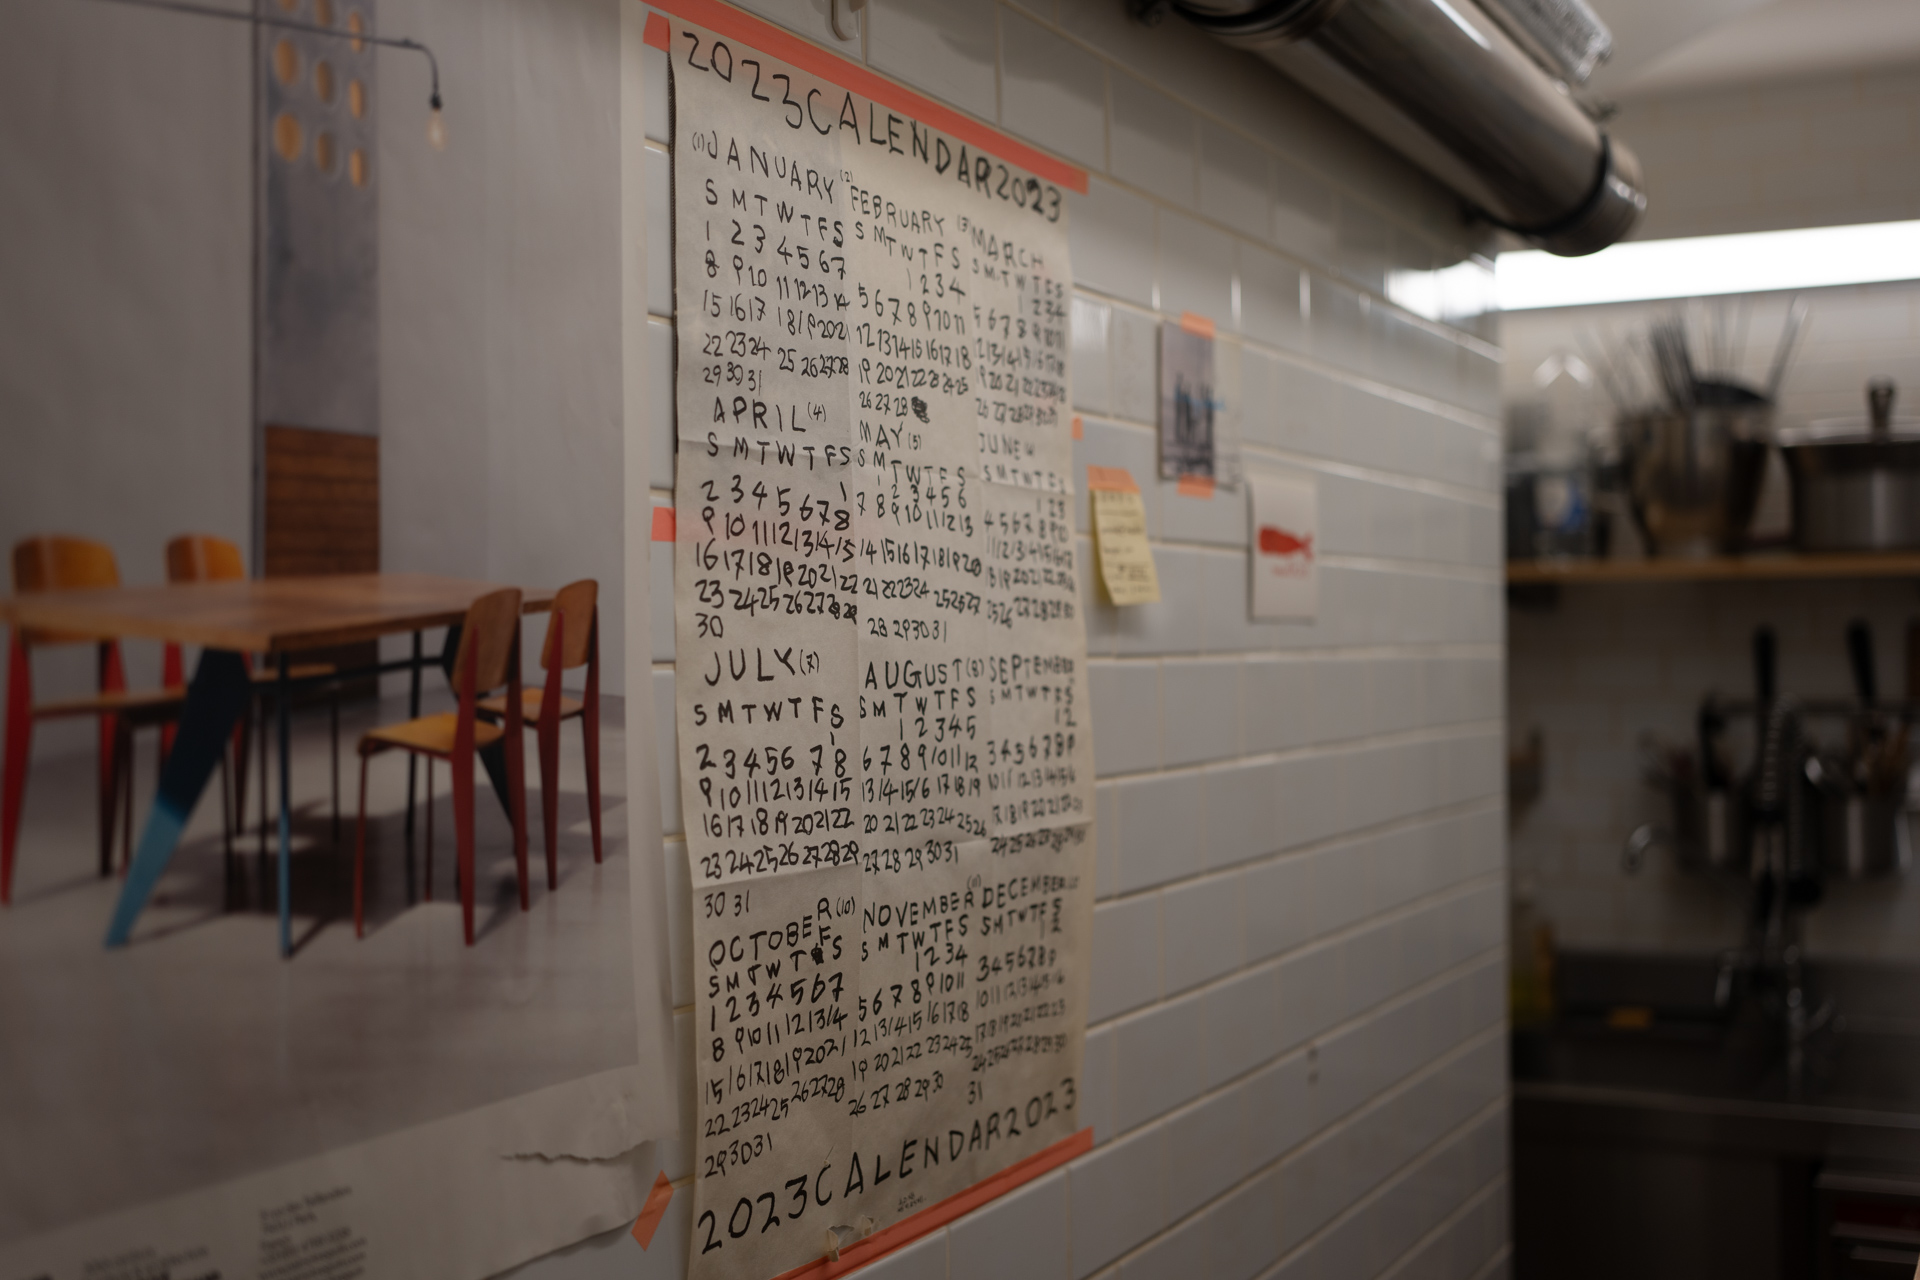 2023CALENDAR2023
(1)JANUARY
S M T W T F S
1 2 3 4 5 6 7
8 9 10 11 12 13 14
15 16 17 18 19 20 21
22 23 24 25 26 27 28
29 30 31
(2)FEBRUARY
S M T W T F S
1 2 3 4
5 6 7 8 9 10 11
12 13 14 15 16 17 18
19 20 21 22 23 24 25
26 27 28
(3)MARCH
S M T W T F S
1 2 3 4
5 6 7 8 9 10 11
12 13 14 15 16 17 18
19 20 21 22 23 24 25
26 27 28 29 30 31
APRIL(4)
S M T W T F S
1
2 3 4 5 6 7 8
9 10 11 12 13 14 15
16 17 18 19 20 21 22
23 24 25 26 27 28 29
30
MAY(5)
S M T W T F S
1 2 3 4 5 6
7 8 9 10 11 12 13
14 15 16 17 18 19 20
21 22 23 24 25 26 27
28 29 30 31
JUNE
S M T W T F S
1 2 3
4 5 6 7 8 9 10
11 12 13 14 15 16 17
18 19 20 21 22 23 24
25 26 27 28 29 30
JULY(7)
S M T W T F S
1
2 3 4 5 6 7 8
9 10 11 12 13 14 15
16 17 18 19 20 21 22
23 24 25 26 27 28 29
30 31
AUGUST(8)
S M T W T F S
1 2 3 4 5
6 7 8 9 10 11 12
13 14 15 16 17 18 19
20 21 22 23 24 25 26
27 28 29 30 31
SEPTEMBER
S M T W T F S
1 2
3 4 5 6 7 8 9
10 11 12 13 14 15 16
17 18 19 20 21 22 23
24 25 26 27 28 29 30
OCTOBER(10)
S M T W T F S
1 2 3 4 5 6 7
8 9 10 11 12 13 14
15 16 17 18 19 20 21
22 23 24 25 26 27 28
29 30 31
NOVEMBER(11)
S M T W T F S
1 2 3 4
5 6 7 8 9 10 11
12 13 14 15 16 17 18
19 20 21 22 23 24 25
26 27 28 29 30
DECEMBER
S M T W T F S
1 2
3 4 5 6 7 8 9
10 11 12 13 14 15 16
17 18 19 20 21 22 23
24 25 26 27 28 29 30
31
2023CALENDAR2023